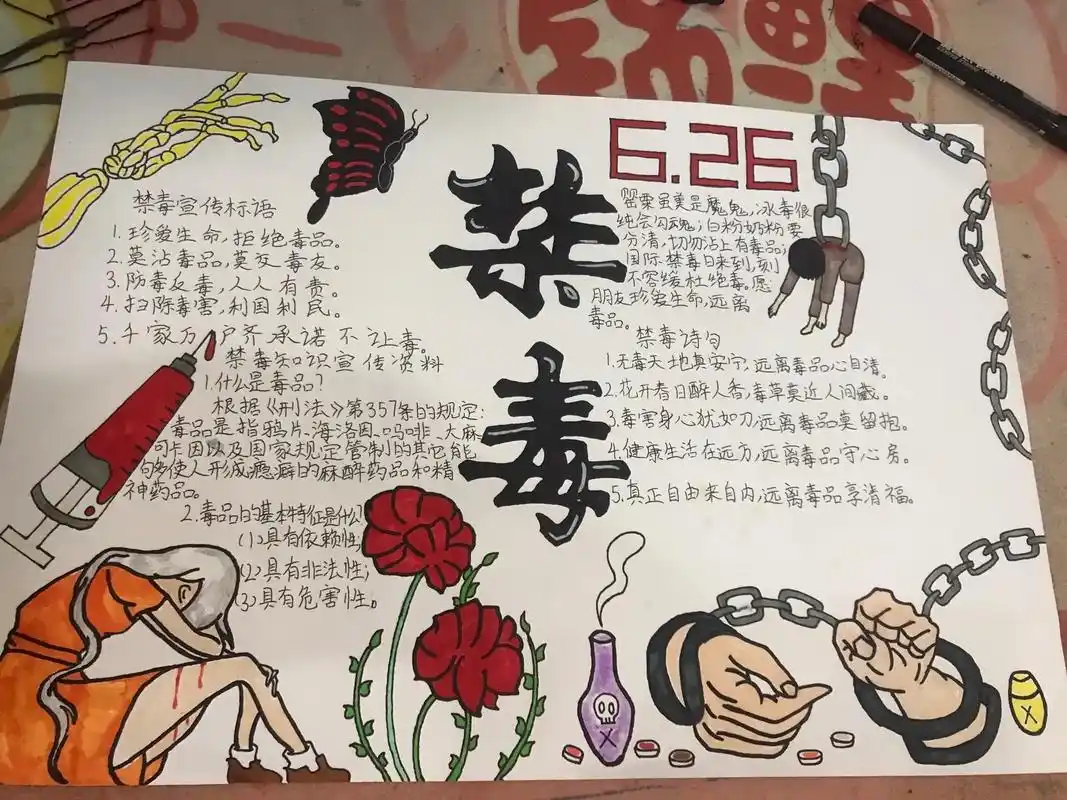 禁毒
6.26
禁毒宣传标语
1.珍爱生命,拒绝毒品。
2.莫沾毒品,莫交毒友。
3.防毒反毒,人人有责。
4.扫除毒害,利国利民。
5.千家万户齐承诺不让毒。
禁毒知识宣传资料
1.什么是毒品?
根据《刑法》第357条的规定:
毒品是指鸦片、海洛因、吗啡、大麻
可卡因以及国家规定管制的其它能
够使人形成瘾癖的麻醉药品和精
神药品。
2.毒品的基本特征是什么?
(1)具有依赖性;
(2)具有非法性;
(3)具有危害性。
罂粟虽美是魔鬼,冰毒很
纯会勾魂;白粉奶粉要
分清,切勿沾上有毒品;
国际禁毒日来到,刻
不容缓杜绝毒。愿
朋友珍爱生命,远离
毒品。
禁毒诗句
1.无毒天地真安宁,远离毒品心自清。
2.花开春日醉人香,毒草莫近人间藏。
3.毒害身心犹如刀,远离毒品莫留抱。
4.健康生活在远方,远离毒品守心房。
5.真正自由来自内,远离毒品享清福。
X
X